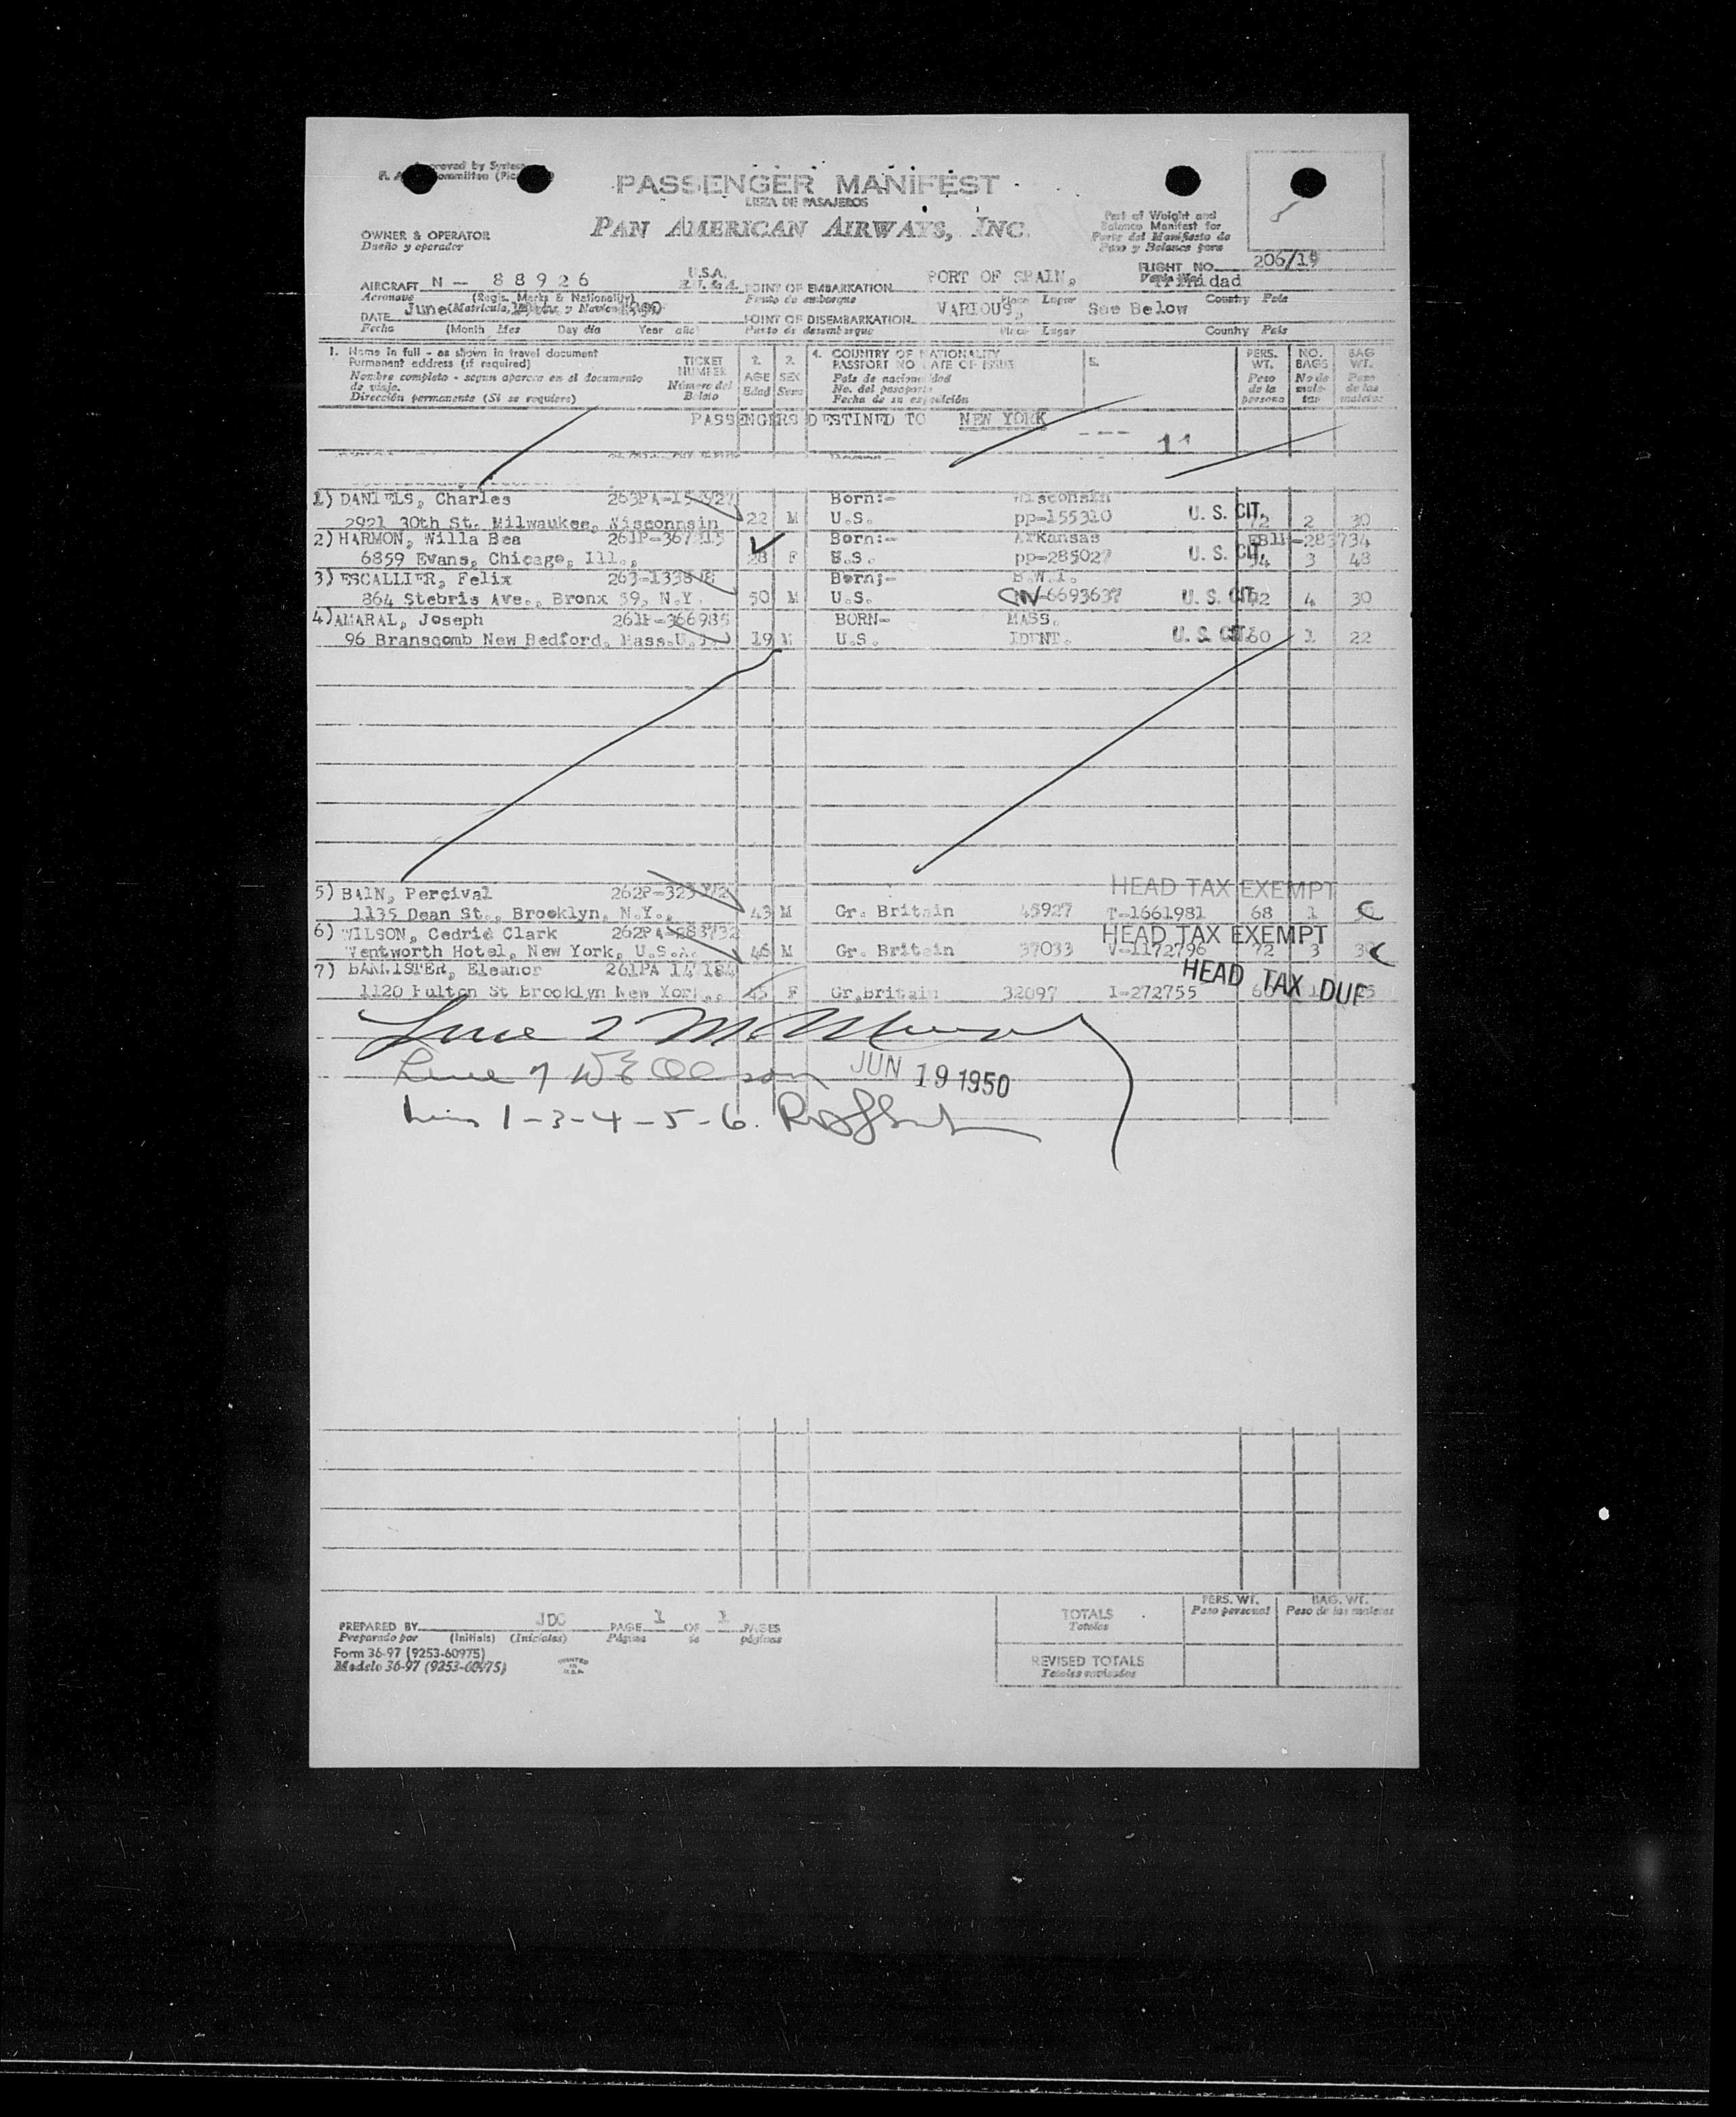 PASSENGER MANIFEST
LISTA DE PASAJEROS
PAN AMERICAN AIRWAYS, INC.
OWNER & OPERATOR
Dueño y operador
Part of Weight and
Balance Manifest for
Parte del Manifiesto de
Peso y Balance para
FLIGHT NO. 206/19
AIRCRAFT N - 88926 U.S.A. POINT OF EMBARKATION PORT OF SPAIN, Trinidad
Aeronave (Regis. Marks & Nationality) Punto de embarque Place Lugar Country País
DATE June 1950 POINT OF DISEMBARKATION VARIOUS, See Below
Fecha (Month Mes Day día Year año) Punto de desembarque Place Lugar Country País
1. Name in full - as shown in travel document
Permanent address (if required)
Nombre completo - segun aparece en el documento
de viaje.
Dirección permanente (Si se requiere)
TICKET
NUMBER
Número del
Boleto
2.
AGE
Edad
3.
SEX
Sexo
4. COUNTRY OF NATIONALITY
PASSPORT NO DATE OF ISSUE
País de nacionalidad
No. del pasaporte
Fecha de su expedición
5.
PERS.
WT.
Peso
de la
persona
NO.
BAGS
No de
male-
tas
BAG
WT.
Peso
de las
maletas
PASSENGERS DESTINED TO NEW YORK
11
1) DANIELS, Charles Born:- Wisconsin
2921 30th St. Milwaukee, Wisconnsin 22 M U.S. pp-155310 U. S. CIT. 72 2 30
2) HARMON, Willa Bea Born:- Arkansas
6859 Evans, Chicago, Ill., 28 F U.S. pp-285027 U. S. CIT. 3 48
3) ESCALLIER, Felix Born;- B.W.I.
864 Stebris Ave., Bronx 59, N.Y. 50 M U.S. CN-6693637 U. S. CIT. 4 30
4) AMARAL, Joseph 261P-366985 BORN- MASS.
96 Branscomb New Bedford, Mass. 19 M U.S. IDENT. U. S. CIT. 60 1 22
HEAD TAX EXEMPT
5) BAIN, Percival
1135 Dean St., Brooklyn, N.Y., 43 M Gr. Britain 45927 T-1661981 68 1
6) WILSON, Cedric Clark HEAD TAX EXEMPT
Wentworth Hotel, New York, U.S.A. 46 M Gr. Britain 37033 V-1172796 72 3
7) BANNISTER, Eleanor HEAD TAX DUE
1120 Fulton St Brooklyn New York, 45 F Gr.Britain 32097 I-272755
Line 2
Line 7
JUN 19 1950
Lines 1-3-4-5-6.
PREPARED BY JDC PAGE 1 OF 1 PAGES
Preparado por (Initials) (Iniciales) Página de páginas
Form 36-97 (9253-60975)
Modelo 36-97 (9253-60975)
PRINTED
IN
U.S.A.
PERS. WT.
Peso personal
BAG. WT.
Peso de las maletas
TOTALS
Totales
REVISED TOTALS
Totales revisados